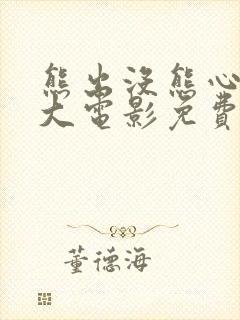 熊出没熊心
大电影免费
董德海